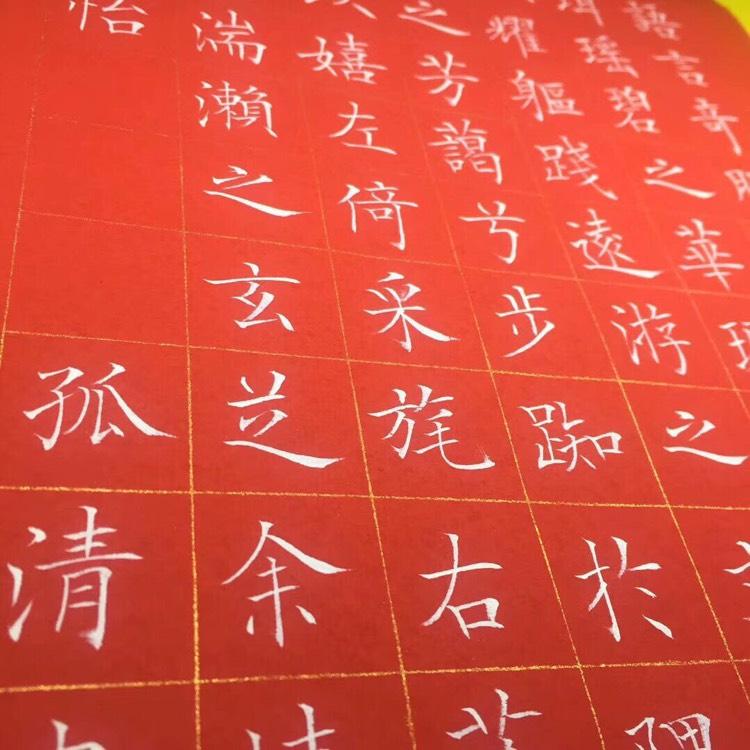 語言奇
珥瑤碧之華
耀軀踐遠游之
之芳藹兮步踟於隅
嬉左倚采旄右
湍瀨之玄芝余情
怡
孤清